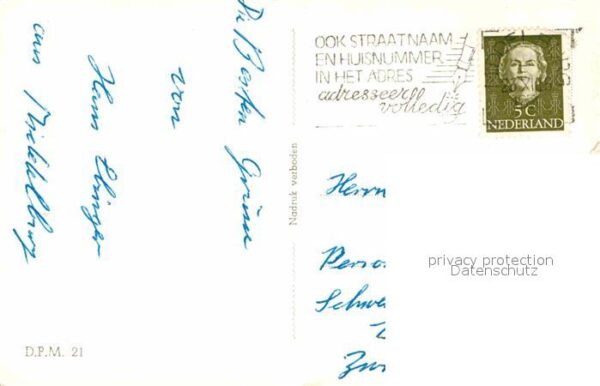 Die Besten Grüsse
von
Hans
aus Middelburg
D.P.M. 21
Nadruk verboden
OOK STRAATNAAM
EN HUISNUMMER
IN HET ADRES
adresseer
volledig
5 C
NEDERLAND
Herrn
Perso
Schwe
Zür
privacy protection
Datenschutz